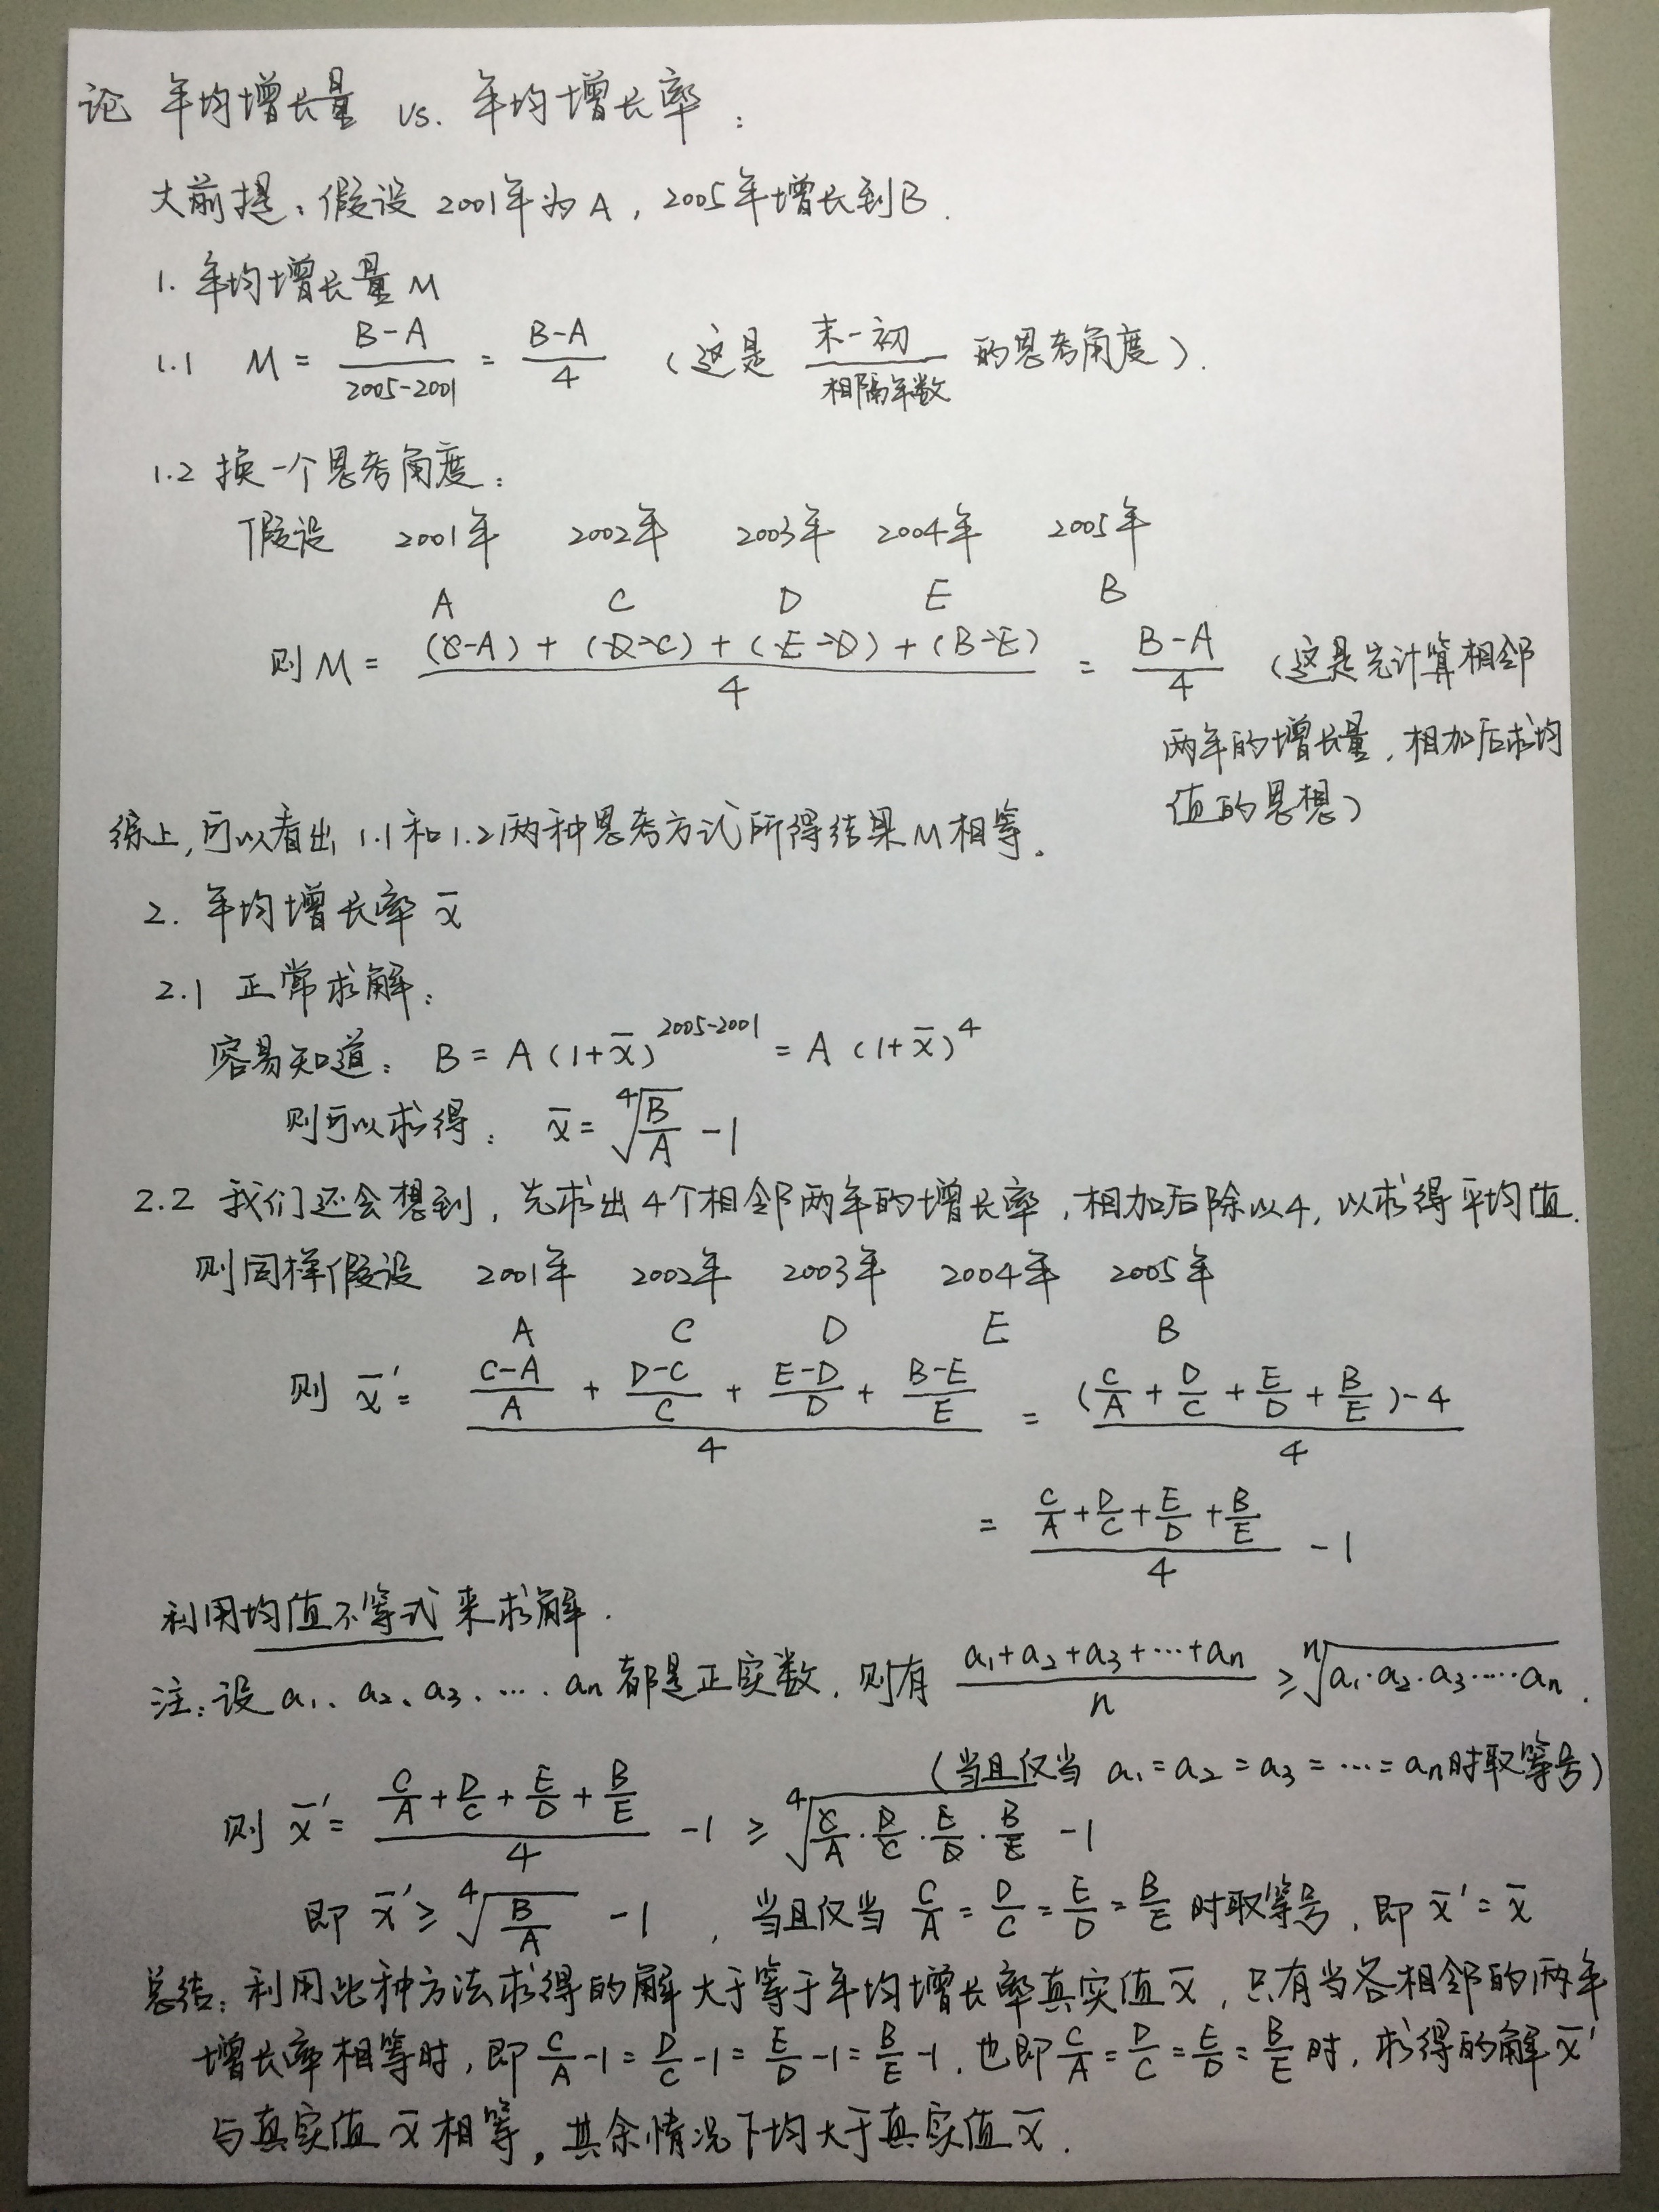 论 年均增长量 vs. 年均增长率：
大前提：假设2001年为A，2005年增长到B.
1. 年均增长量 M
1.1 M = \frac{B-A}{2005-2001} = \frac{B-A}{4} （这是 \frac{末-初}{相隔年数} 的思考角度）.
1.2 换一个思考角度：
假设 2001年 2002年 2003年 2004年 2005年
A C D E B
则 M = \frac{(C-A)+(D-C)+(E-D)+(B-E)}{4} = \frac{B-A}{4} （这是先计算相邻
两年的增长量，相加后求均
值的思想）
综上，可以看出 1.1和1.2两种思考方式所得结果M相等。
2. 年均增长率 \bar{x}
2.1 正常求解：
容易知道：B = A(1+\bar{x})^{2005-2001} = A(1+\bar{x})^4
则可以求得：\bar{x} = \sqrt[4]{\frac{B}{A}} - 1
2.2 我们还会想到，先求出4个相邻两年的增长率，相加后除以4，以求得平均值.
则同样假设 2001年 2002年 2003年 2004年 2005年
A C D E B
则 \bar{x}' = \frac{\frac{C-A}{A}+\frac{D-C}{C}+\frac{E-D}{D}+\frac{B-E}{E}}{4} = \frac{(\frac{C}{A}+\frac{D}{C}+\frac{E}{D}+\frac{B}{E})-4}{4}
= \frac{\frac{C}{A}+\frac{D}{C}+\frac{E}{D}+\frac{B}{E}}{4} - 1
利用均值不等式来求解.
注：设 a₁、a₂、a₃、…、aₙ 都是正实数，则有 \frac{a₁+a₂+a₃+…+aₙ}{n} ≥ \sqrt[n]{a₁·a₂·a₃·…·aₙ}.
（当且仅当 a₁=a₂=a₃=…=aₙ时取等号）
则 \bar{x}' = \frac{\frac{C}{A}+\frac{D}{C}+\frac{E}{D}+\frac{B}{E}}{4} - 1 ≥ \sqrt[4]{\frac{C}{A}·\frac{D}{C}·\frac{E}{D}·\frac{B}{E}} - 1
即 \bar{x}' ≥ \sqrt[4]{\frac{B}{A}} - 1，当且仅当 \frac{C}{A}=\frac{D}{C}=\frac{E}{D}=\frac{B}{E} 时取等号，即 \bar{x}'=\bar{x}
总结：利用此种方法求得的解大于等于年均增长率真实值\bar{x}，只有当各相邻的两年
增长率相等时，即 \frac{C}{A}-1=\frac{D}{C}-1=\frac{E}{D}-1=\frac{B}{E}-1，也即 \frac{C}{A}=\frac{D}{C}=\frac{E}{D}=\frac{B}{E} 时，求得的解\bar{x}'
与真实值\bar{x}相等，其余情况下均大于真实值\bar{x}.